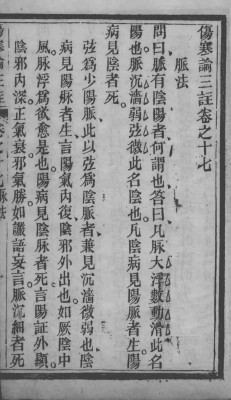 傷寒論三註卷之十七
脈法
問曰脈有陰陽者何謂也答曰凡脈大浮數動滑此名
陽也脈沉濇弱弦微此名陰也凡陰病見陽脈者生陽
病見陰者死
弦爲少陽脈此以弦爲陰脈者兼見沉濇微弱也陰
病見陽脉者生言陽氣內復陰邪外出也如厥陰中
風脉浮爲欲愈是也陽病見陰脉者死言陽証外顯
陰邪內深正氣衰邪氣勝如譫語妄言脈沉細者死
傷寒論三註 卷之十七 脉法